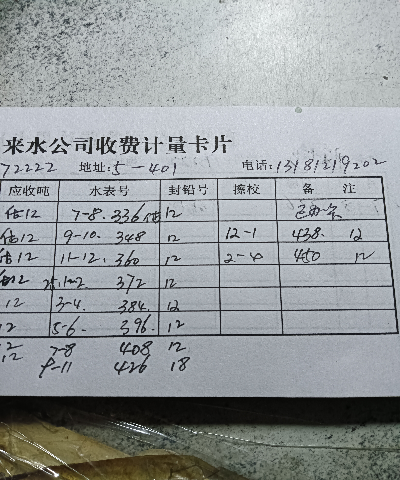 来水公司收费计量卡片
72222 地址:5-401 电话:13181219202
应收吨 水表号 封铅号 擦校 备 注
估12 7-8. 336估 12
估12 9-10. 348 12 12-1 438. 12
估12 11-12. 360 12 2-4 450 12
估12 25.1-2 372 12
12 3-4. 384. 12
12 5-6. 396. 12
12 7-8 408 12
12 9-11 426 18